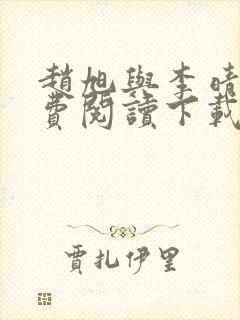 趙旭與李晴
費閱讀下載
賈扎伊里